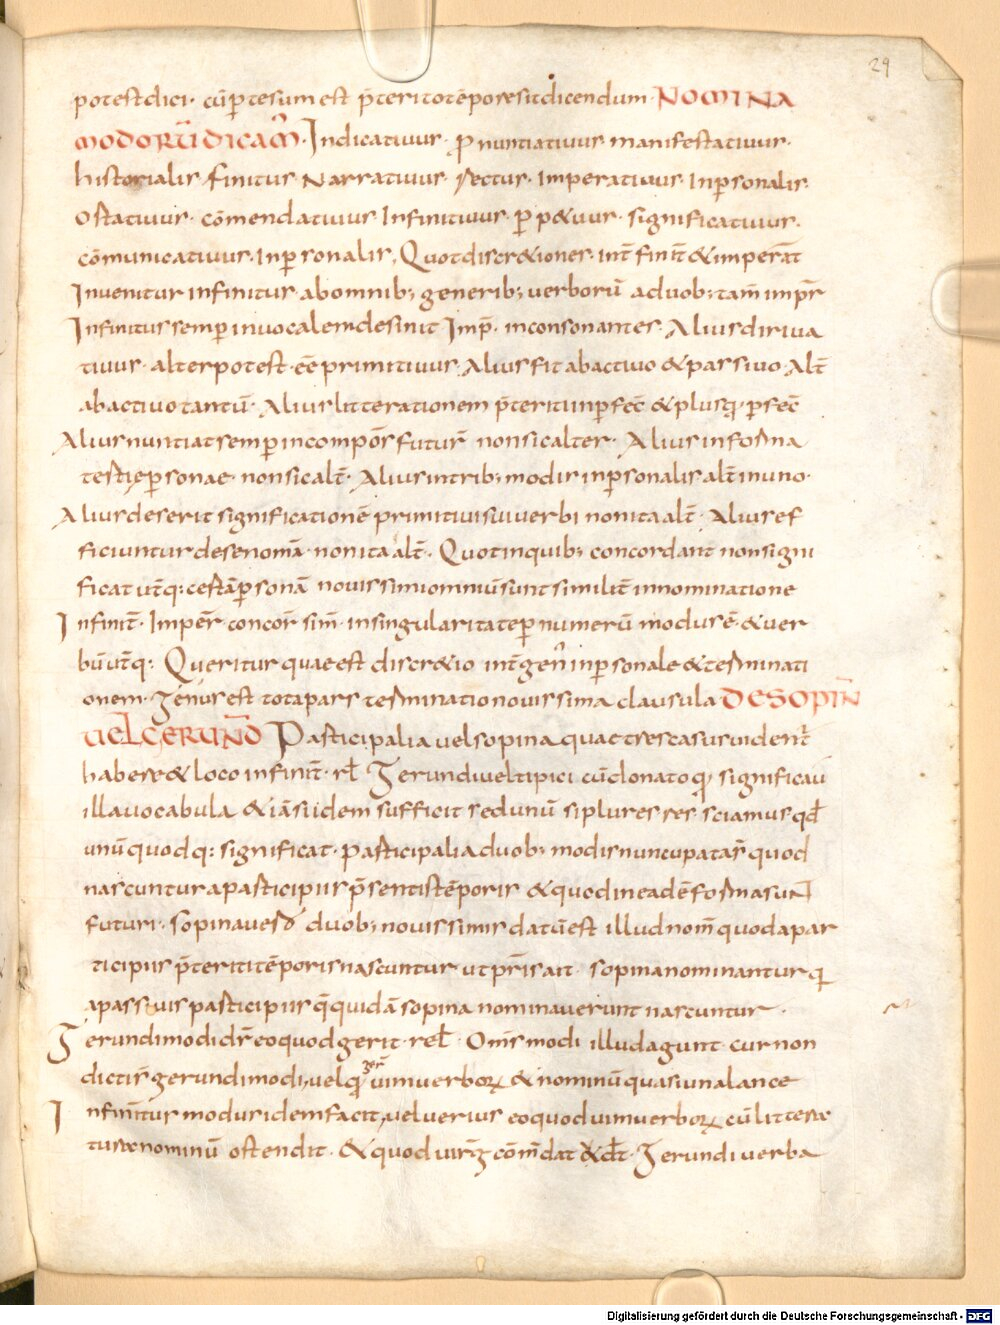 29
potest dici. cū p̄tesum est p̄terito tēpore sit dicendum. NOMINA
MODORŪ DICAM̄. Indicatiuus. pronuntiatiuus. manifestatiuus.
historialis. finitus. Narratiuus. rectus. Imperatiuus. Inp̱sonalis.
Optatiuus. cōmendatiuus. Infinitiuus. perpetuus. significatiuus.
cōmunicatiuus. Inp̱sonalis. Quot discr&iones. int̄ finit̄ & imperat̄
Inuenitur infinitus. ab omnib; generib; uerborū a duob; tam̄ imp̄r
Infinitus semp̱ in uocalem desinit Imp̄. in consonantes. Alius diriua
tiuus. alter potest. ēē primitiuus. Alius fit ab actiuo & passiuo Alt̄
ab actiuo tantū. Alius litterationem p̄teriti inp̱fec̄ & plusq̄. p̱fec̄
Alius nuntiat semp̱ in compōs futur̄ non sic alter. Alius in forma
tertię p̱sonae. non sic alt̄. Alius in trib; modis inp̱sonalis alt̄ in uno.
Alius deserit significationē primitiui sui uerbi non ita alt̄. Alius ef
ficiuntur de se nomā. non ita alt̄. Quot in quib; concordant non signi
ficat ut̄q; certā p̱sonā nouissimi omniū sunt similit̄ in nominatione
Infinit̄. Imper̄ concor̄ sim̄. in singularitate p̱ numerū modus ē. & uer
bū ut̄q; Queritur quae est discr&io int̄ gen̄ inp̱sonale & terminati
onem. Genus est tota pars terminatio nouissima clausula DE SOPIN̄
UEL GERUND̄ Participalia uel sopina quae tres casus uident̄
habere & loco infinit̄. rl̄ Gerundi uel tipici cū donato q; significaū
illa uocabula & iā si idem sufficit sed unū si plures res. sciamus qd̄
unū quodq; significat. participalia duob; modis nuncupatar̄ quod
nascuntur a participiis p̄sentis tēporis & quod in eadē forma sunt
futuri. sopina uero duob; nouissimis datū est illud nom̄ quod a par
ticipiis p̄teriti tēporis nascuntur ut pris̄ ait. sopina nominantur q
a passiuis participiis q̄ quidā sopina nominauerunt nascuntur.
Gerundi modi dr̄ eo quod gerit. rel̄. Om̄s modi illud agunt. cur non
dictis̄ gerundi modi, uel q; ger̄ uim uerborꝝ & nominū quasi una lance
Infinitur modus idem facit, uel uerius eo quod uim uerborꝝ cū litterae
turae nominū ostendit. & quod uirq̄ cōm̄dat Gerundi uerba
Digitalisierung gefördert durch die Deutsche Forschungsgemeinschaft - DFG